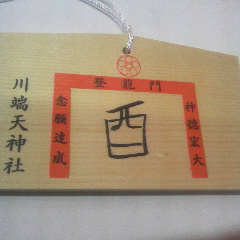 登龍門
神徳宏大
酉
念願達成
川端天神社